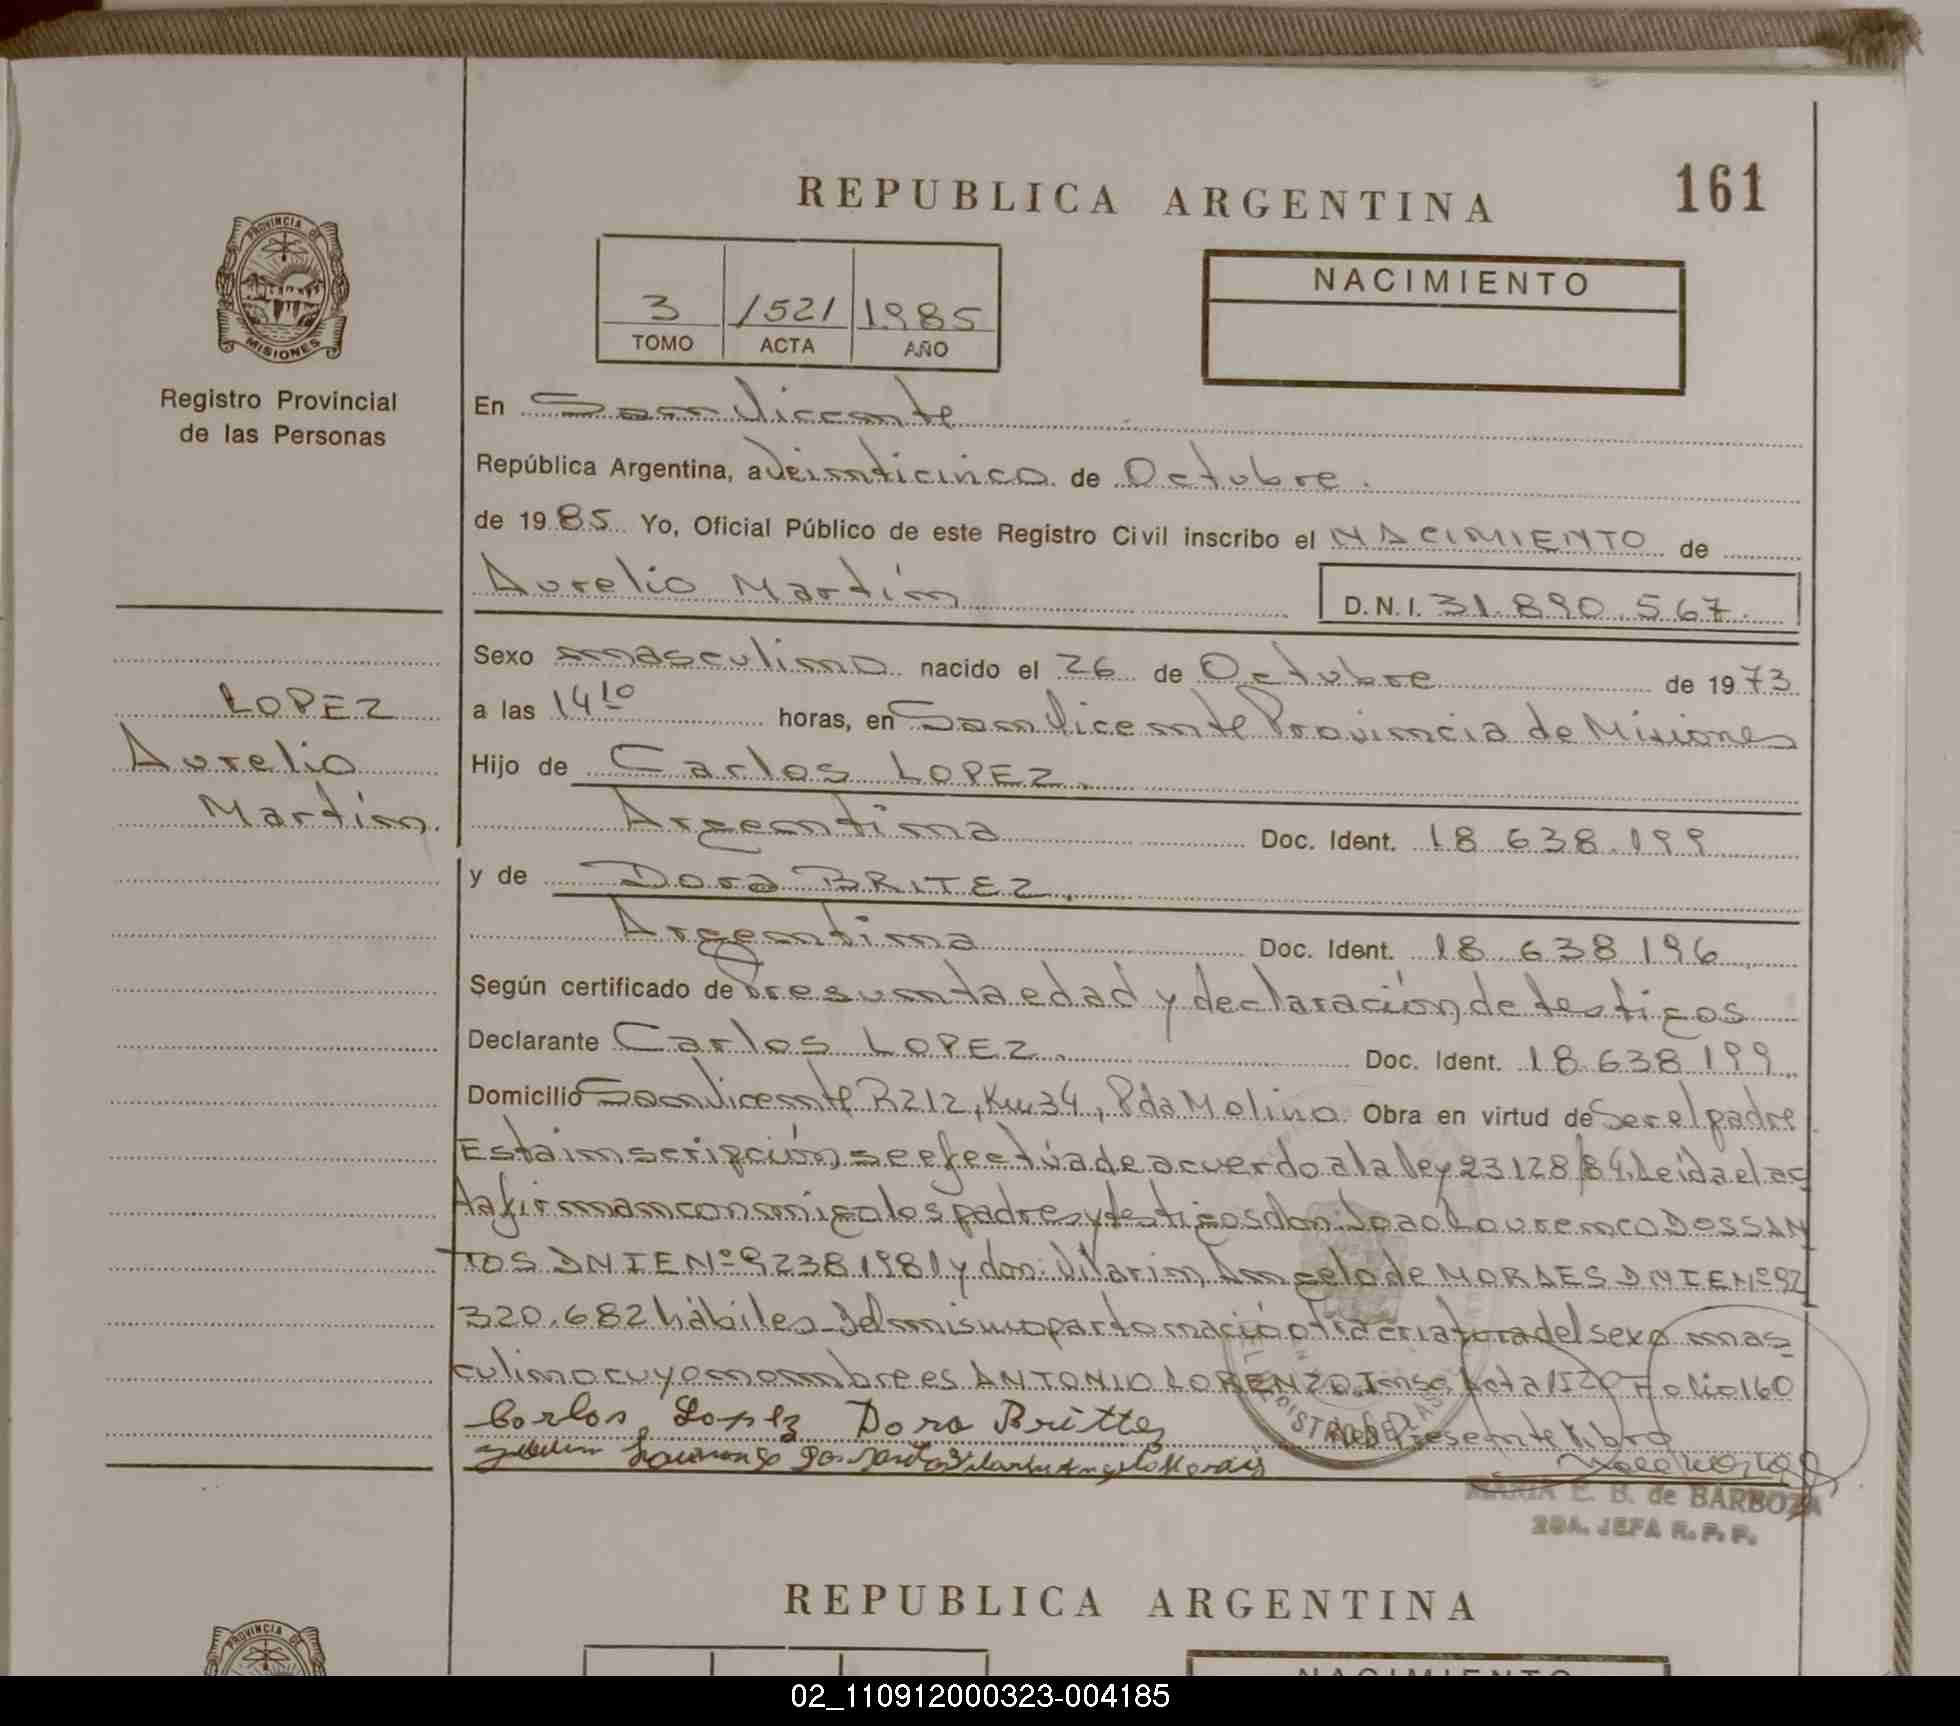 REPUBLICA ARGENTINA
161
PROVINCIA DE
MISIONES
Registro Provincial
de las Personas
3 1521 1985
TOMO ACTA AÑO
NACIMIENTO
En San Vicente
República Argentina, a Veinticinco de Octubre.
de 1985 Yo, Oficial Público de este Registro Civil inscribo el NACIMIENTO de
Aurelio Martín
D.N.I. 31.890.567.
LOPEZ
Aurelio
Martín.
Sexo masculino nacido el 26 de Octubre de 1973
a las 14 10 horas, en San Vicente Provincia de Misiones
Hijo de Carlos LOPEZ.
Argentina Doc. Ident. 18.638.199
y de Dora BRITEZ.
Argentina Doc. Ident. 18.638.196
Según certificado de Presunta edad y declaración de testigos
Declarante Carlos LOPEZ. Doc. Ident. 18.638.199
Domicilio San Vicente R212, Km 34, Pda Molino. Obra en virtud de Ser el padre
Esta inscripción se efectúa de acuerdo a la ley 23128/84. Leida el ac
ta firman conmigo los padres y testigos don: Joao Lourenco DOS SAN
TOS DNI EN° 92381981 y don: Vilarin Angelo de MORAES DNI EN° 92
320.682 hábiles_Del mismo parto nació otra criatura del sexo mas
culino cuyo nombre es ANTONIO LORENZO. Insc. Acta 1520 Folio 160
Carlos Lopez Dora Brittez
del Presente libro
MARIA E. B. de BARBOZA
2DA. JEFA R. P. P.
REPUBLICA ARGENTINA
PROVINCIA DE
NACIMIENTO
02_110912000323-004185